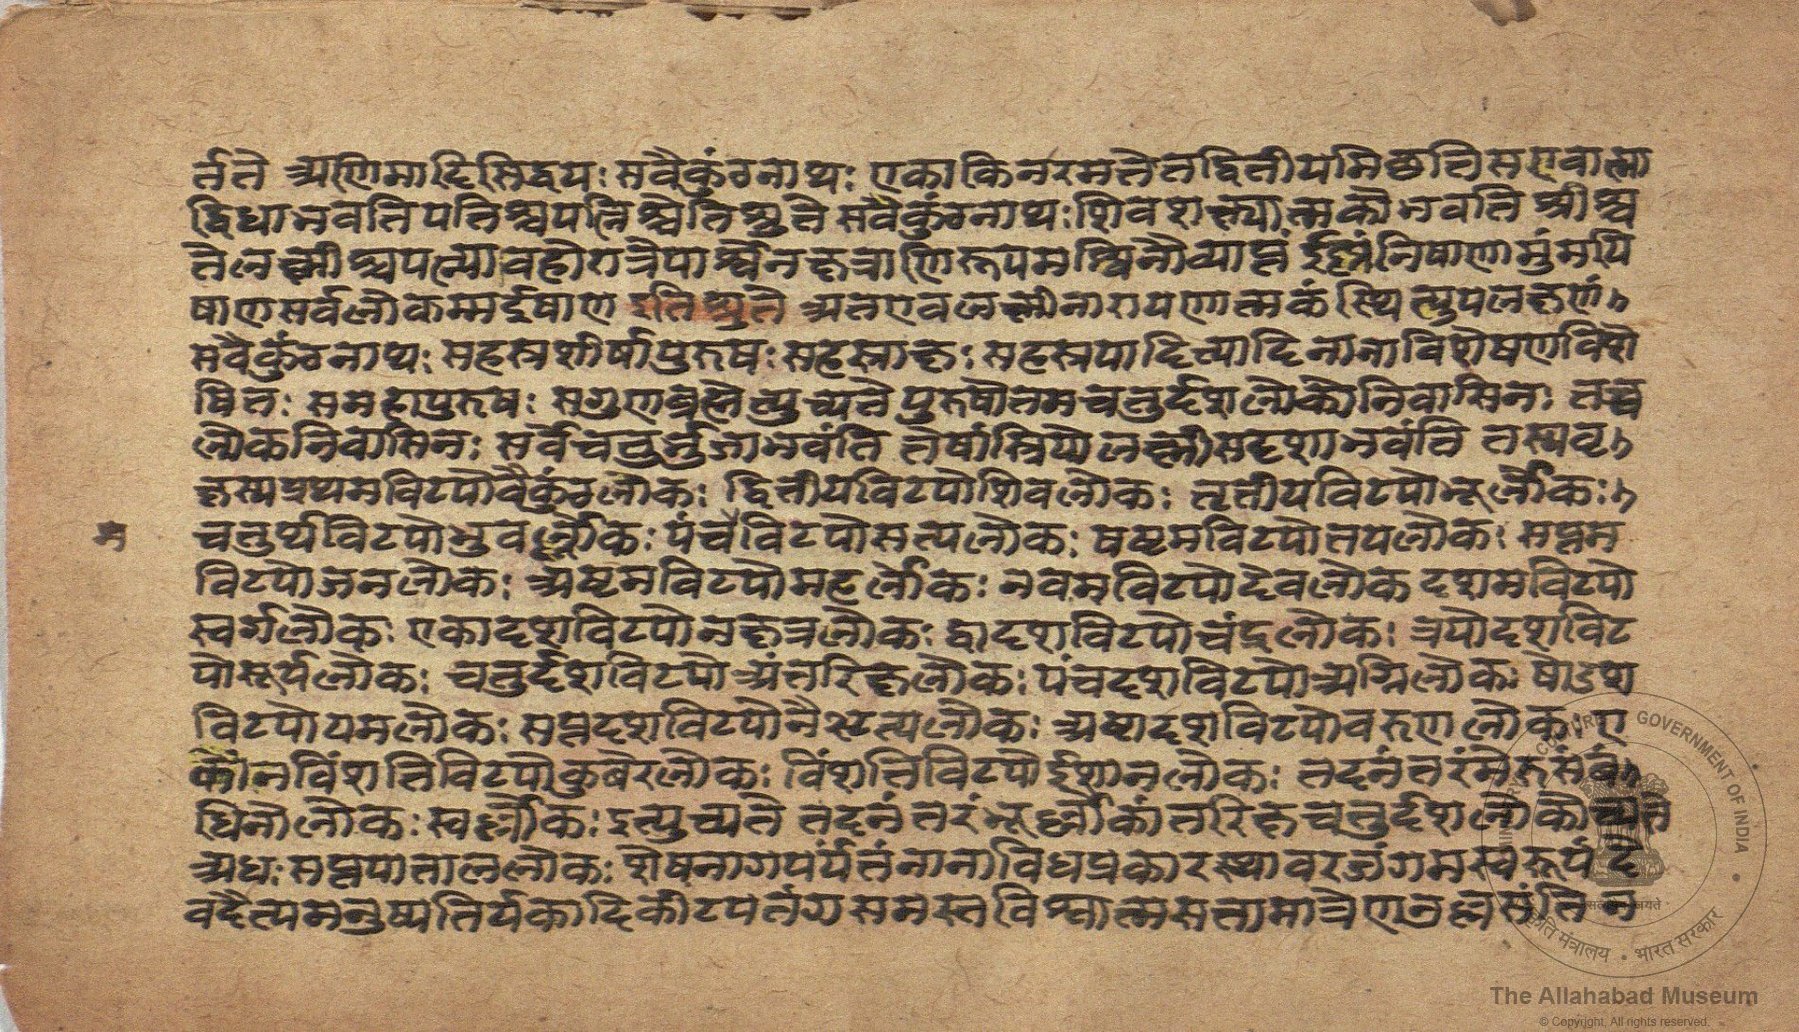 र्तते अणिमादिसिद्धयः सवैकुंठनाथः एकाकिनरमत्तेतद्वितीयमिछतिसएवात्मा
द्विधाभवतिपतिश्चपत्निश्चेतिश्रुते सवैकुंठनाथः शिवशक्त्यात्मकौभवति श्रीश्च
तेलक्ष्मीश्चपत्न्यावहोरात्रेपार्श्वेनक्षत्राणिरूपमश्विनौव्याप्तं इष्णंनिषाणामुंमयि
षाणसर्वलोकम्मईषाण इतिश्रुते अतएवलक्ष्मीनारायणात्मकं स्थित्युपलक्षणं
सवैकुंठनाथः सहस्रशीर्षापुरुषः सहस्राक्षः सहस्रपादित्यादिनानाविशेषणविशे
षितः समहापुरुषः सगुणब्रह्मेत्युच्यते पुरुषोतमचतुर्दशलोकोनिवासिनः तच्च
लोकनिवासिनः सर्वेचतुर्भुजाभवंति तेषांस्त्रियोलक्ष्मीसदृशाभवंति तस्यवृ
क्षस्यप्रथमविटपोवैकुंठलोकः द्वितीयविटपोशिवलोकः तृतीयविटपोभूर्लोकः
चतुर्थविटपोभुवर्ल्लोकः पंचविटपोसत्यलोकः षष्टमविटपोतपलोकः सप्तम
म
विटपोजनलोकः अष्टमविटपोमहर्लोकः नवमविटपोदेवलोक दशमविटपो
स्वर्गलोकः एकादशविटपोनक्षत्रलोकः द्वादशविटपोचंद्रलोकः त्रयोदशविट
पोसूर्यलोकः चतुर्दशविटपोअंतरिक्षलोकः पंचदशविटपोअग्निलोकः षोडश
विटपोयमलोकः सप्तदशविटपोनैऋत्यलोकः अष्टादशविटपोवरुणलोकः ए
कोनविंशतिविटपोकुबेरलोकः विंशतिविटपोईशानलोकः तदनंतरंमेरुसंबं
धिनोलोकः स्वर्ल्लोकः इत्युच्यते तदनंतरंभूर्ल्लोकांतरिक्षचतुर्दशलोकोच्यते
अधः सप्तपाताललोकः शेषनागपर्यंतंनानाविधप्रकारस्थावरजंगमस्वरूपं दे
वदैत्यमनुष्यतिर्यकादिकीटपतंगसमस्तविश्वात्मसत्तामात्रेणब्रह्मतंतिन
MINISTRY OF CULTURE GOVERNMENT OF INDIA
सत्यमेव जयते
संस्कृति मंत्रालय • भारत सरकार
The Allahabad Museum
© Copyright, All rights reserved.